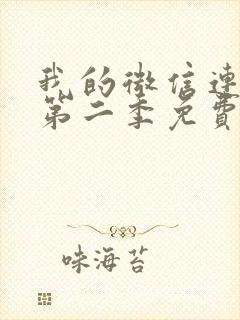 我的微信連
第二季免費
味海苔